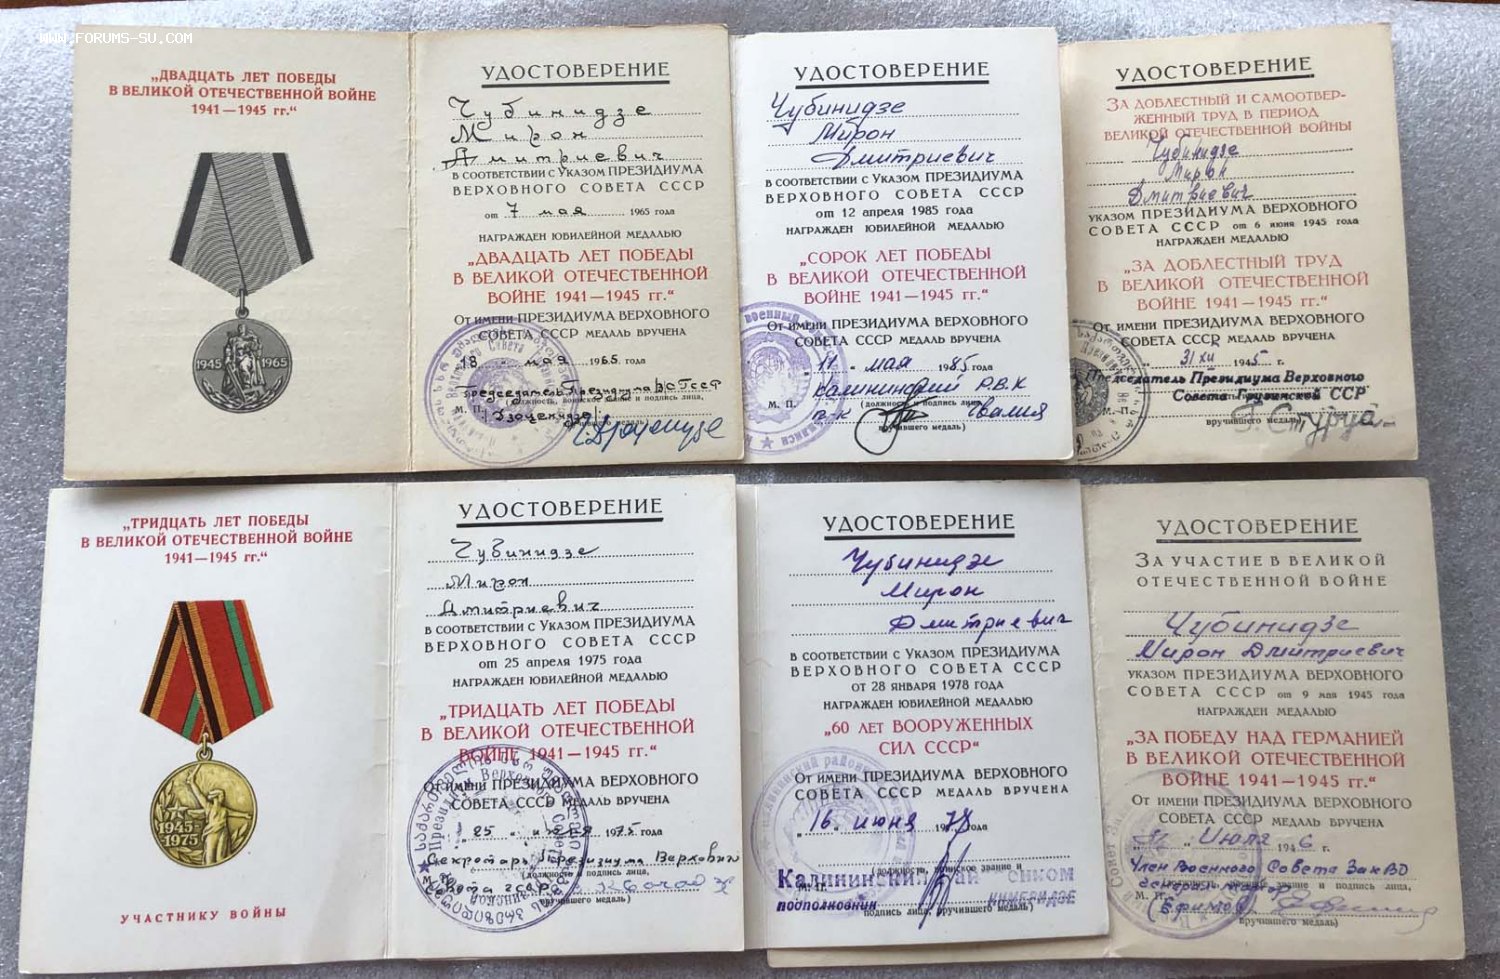 WWW.FORUMS-SU.COM
„ДВАДЦАТЬ ЛЕТ ПОБЕДЫ
В ВЕЛИКОЙ ОТЕЧЕСТВЕННОЙ ВОЙНЕ
1941—1945 гг.“
1945 1965
УДОСТОВЕРЕНИЕ
Чубинидзе
Мирон
Дмитриевич
В СООТВЕТСТВИИ С УКАЗОМ ПРЕЗИДИУМА
ВЕРХОВНОГО СОВЕТА СССР
от 7 мая 1965 года
НАГРАЖДЕН ЮБИЛЕЙНОЙ МЕДАЛЬЮ
„ДВАДЦАТЬ ЛЕТ ПОБЕДЫ
В ВЕЛИКОЙ ОТЕЧЕСТВЕННОЙ
ВОЙНЕ 1941—1945 гг.“
От имени ПРЕЗИДИУМА ВЕРХОВНОГО
СОВЕТА СССР МЕДАЛЬ ВРУЧЕНА
„18 “ мая 1965 года
Председатель Президиума ВС ГССР
(должность, воинское звание и подпись лица,
М. П. Дзоценидзе
УДОСТОВЕРЕНИЕ
Чубинидзе
Мирон
Дмитриевич
В СООТВЕТСТВИИ С УКАЗОМ ПРЕЗИДИУМА
ВЕРХОВНОГО СОВЕТА СССР
от 12 апреля 1985 года
НАГРАЖДЕН ЮБИЛЕЙНОЙ МЕДАЛЬЮ
„СОРОК ЛЕТ ПОБЕДЫ
В ВЕЛИКОЙ ОТЕЧЕСТВЕННОЙ
ВОЙНЕ 1941—1945 гг.“
От имени ПРЕЗИДИУМА ВЕРХОВНОГО
СОВЕТА СССР МЕДАЛЬ ВРУЧЕНА
„11 “ мая 1985 года
Калининский Р.В.К
М. П. (должность и подпись лица,
п-к
вручившего медаль)
УДОСТОВЕРЕНИЕ
ЗА ДОБЛЕСТНЫЙ И САМООТВЕР-
ЖЕННЫЙ ТРУД В ПЕРИОД
ВЕЛИКОЙ ОТЕЧЕСТВЕННОЙ ВОЙНЫ
Чубинидзе
Мирон
Дмитриевич
УКАЗОМ ПРЕЗИДИУМА ВЕРХОВНОГО
СОВЕТА СССР от 6 июня 1945 года
НАГРАЖДЕН МЕДАЛЬЮ
„ЗА ДОБЛЕСТНЫЙ ТРУД
В ВЕЛИКОЙ ОТЕЧЕСТВЕННОЙ
ВОЙНЕ 1941—1945 гг.“
От имени ПРЕЗИДИУМА ВЕРХОВНОГО
СОВЕТА СССР МЕДАЛЬ ВРУЧЕНА
31/XII 1945 г.
Председатель Президиума Верховного
Совета Грузинской ССР
М. П.
вручившего медаль)
Г. Стуруа
„ТРИДЦАТЬ ЛЕТ ПОБЕДЫ
В ВЕЛИКОЙ ОТЕЧЕСТВЕННОЙ ВОЙНЕ
1941—1945 гг.“
1945
1975
УЧАСТНИКУ ВОЙНЫ
УДОСТОВЕРЕНИЕ
Чубинидзе
Мирон
Дмитриевич
В СООТВЕТСТВИИ С УКАЗОМ ПРЕЗИДИУМА
ВЕРХОВНОГО СОВЕТА СССР
от 25 апреля 1975 года
НАГРАЖДЕН ЮБИЛЕЙНОЙ МЕДАЛЬЮ
„ТРИДЦАТЬ ЛЕТ ПОБЕДЫ
В ВЕЛИКОЙ ОТЕЧЕСТВЕННОЙ
ВОЙНЕ 1941—1945 гг.“
От имени ПРЕЗИДИУМА ВЕРХОВНОГО
СОВЕТА СССР МЕДАЛЬ ВРУЧЕНА
25 1975 года
Секретарь Президиума Верховн
М. П. (должность и подпись лица,
Совета ГССР
вручившего медаль)
УДОСТОВЕРЕНИЕ
Чубинидзе
Мирон
Дмитриевич
В СООТВЕТСТВИИ С УКАЗОМ ПРЕЗИДИУМА
ВЕРХОВНОГО СОВЕТА СССР
ОТ 28 ЯНВАРЯ 1978 ГОДА
НАГРАЖДЕН ЮБИЛЕЙНОЙ МЕДАЛЬЮ
„60 ЛЕТ ВООРУЖЕННЫХ
СИЛ СССР“
От имени ПРЕЗИДИУМА ВЕРХОВНОГО
СОВЕТА СССР МЕДАЛЬ ВРУЧЕНА
„16 “ июня 1978 года
(должность, воинское звание и
Калининский рай
подполковник
подпись лица, вручившего медаль)
УДОСТОВЕРЕНИЕ
ЗА УЧАСТИЕ В ВЕЛИКОЙ
ОТЕЧЕСТВЕННОЙ ВОЙНЕ
Чубинидзе
Мирон Дмитриевич
УКАЗОМ ПРЕЗИДИУМА ВЕРХОВНОГО
СОВЕТА СССР от 9 мая 1945 года
НАГРАЖДЕН МЕДАЛЬЮ
„ЗА ПОБЕДУ НАД ГЕРМАНИЕЙ
В ВЕЛИКОЙ ОТЕЧЕСТВЕННОЙ
ВОЙНЕ 1941—1945 гг.“
От имени ПРЕЗИДИУМА ВЕРХОВНОГО
СОВЕТА СССР МЕДАЛЬ ВРУЧЕНА
Июля 1946 г.
Член Военного Совета ЗакВО
звание и подпись лица,
М. П.
(Ефимов)
вручившего медаль)